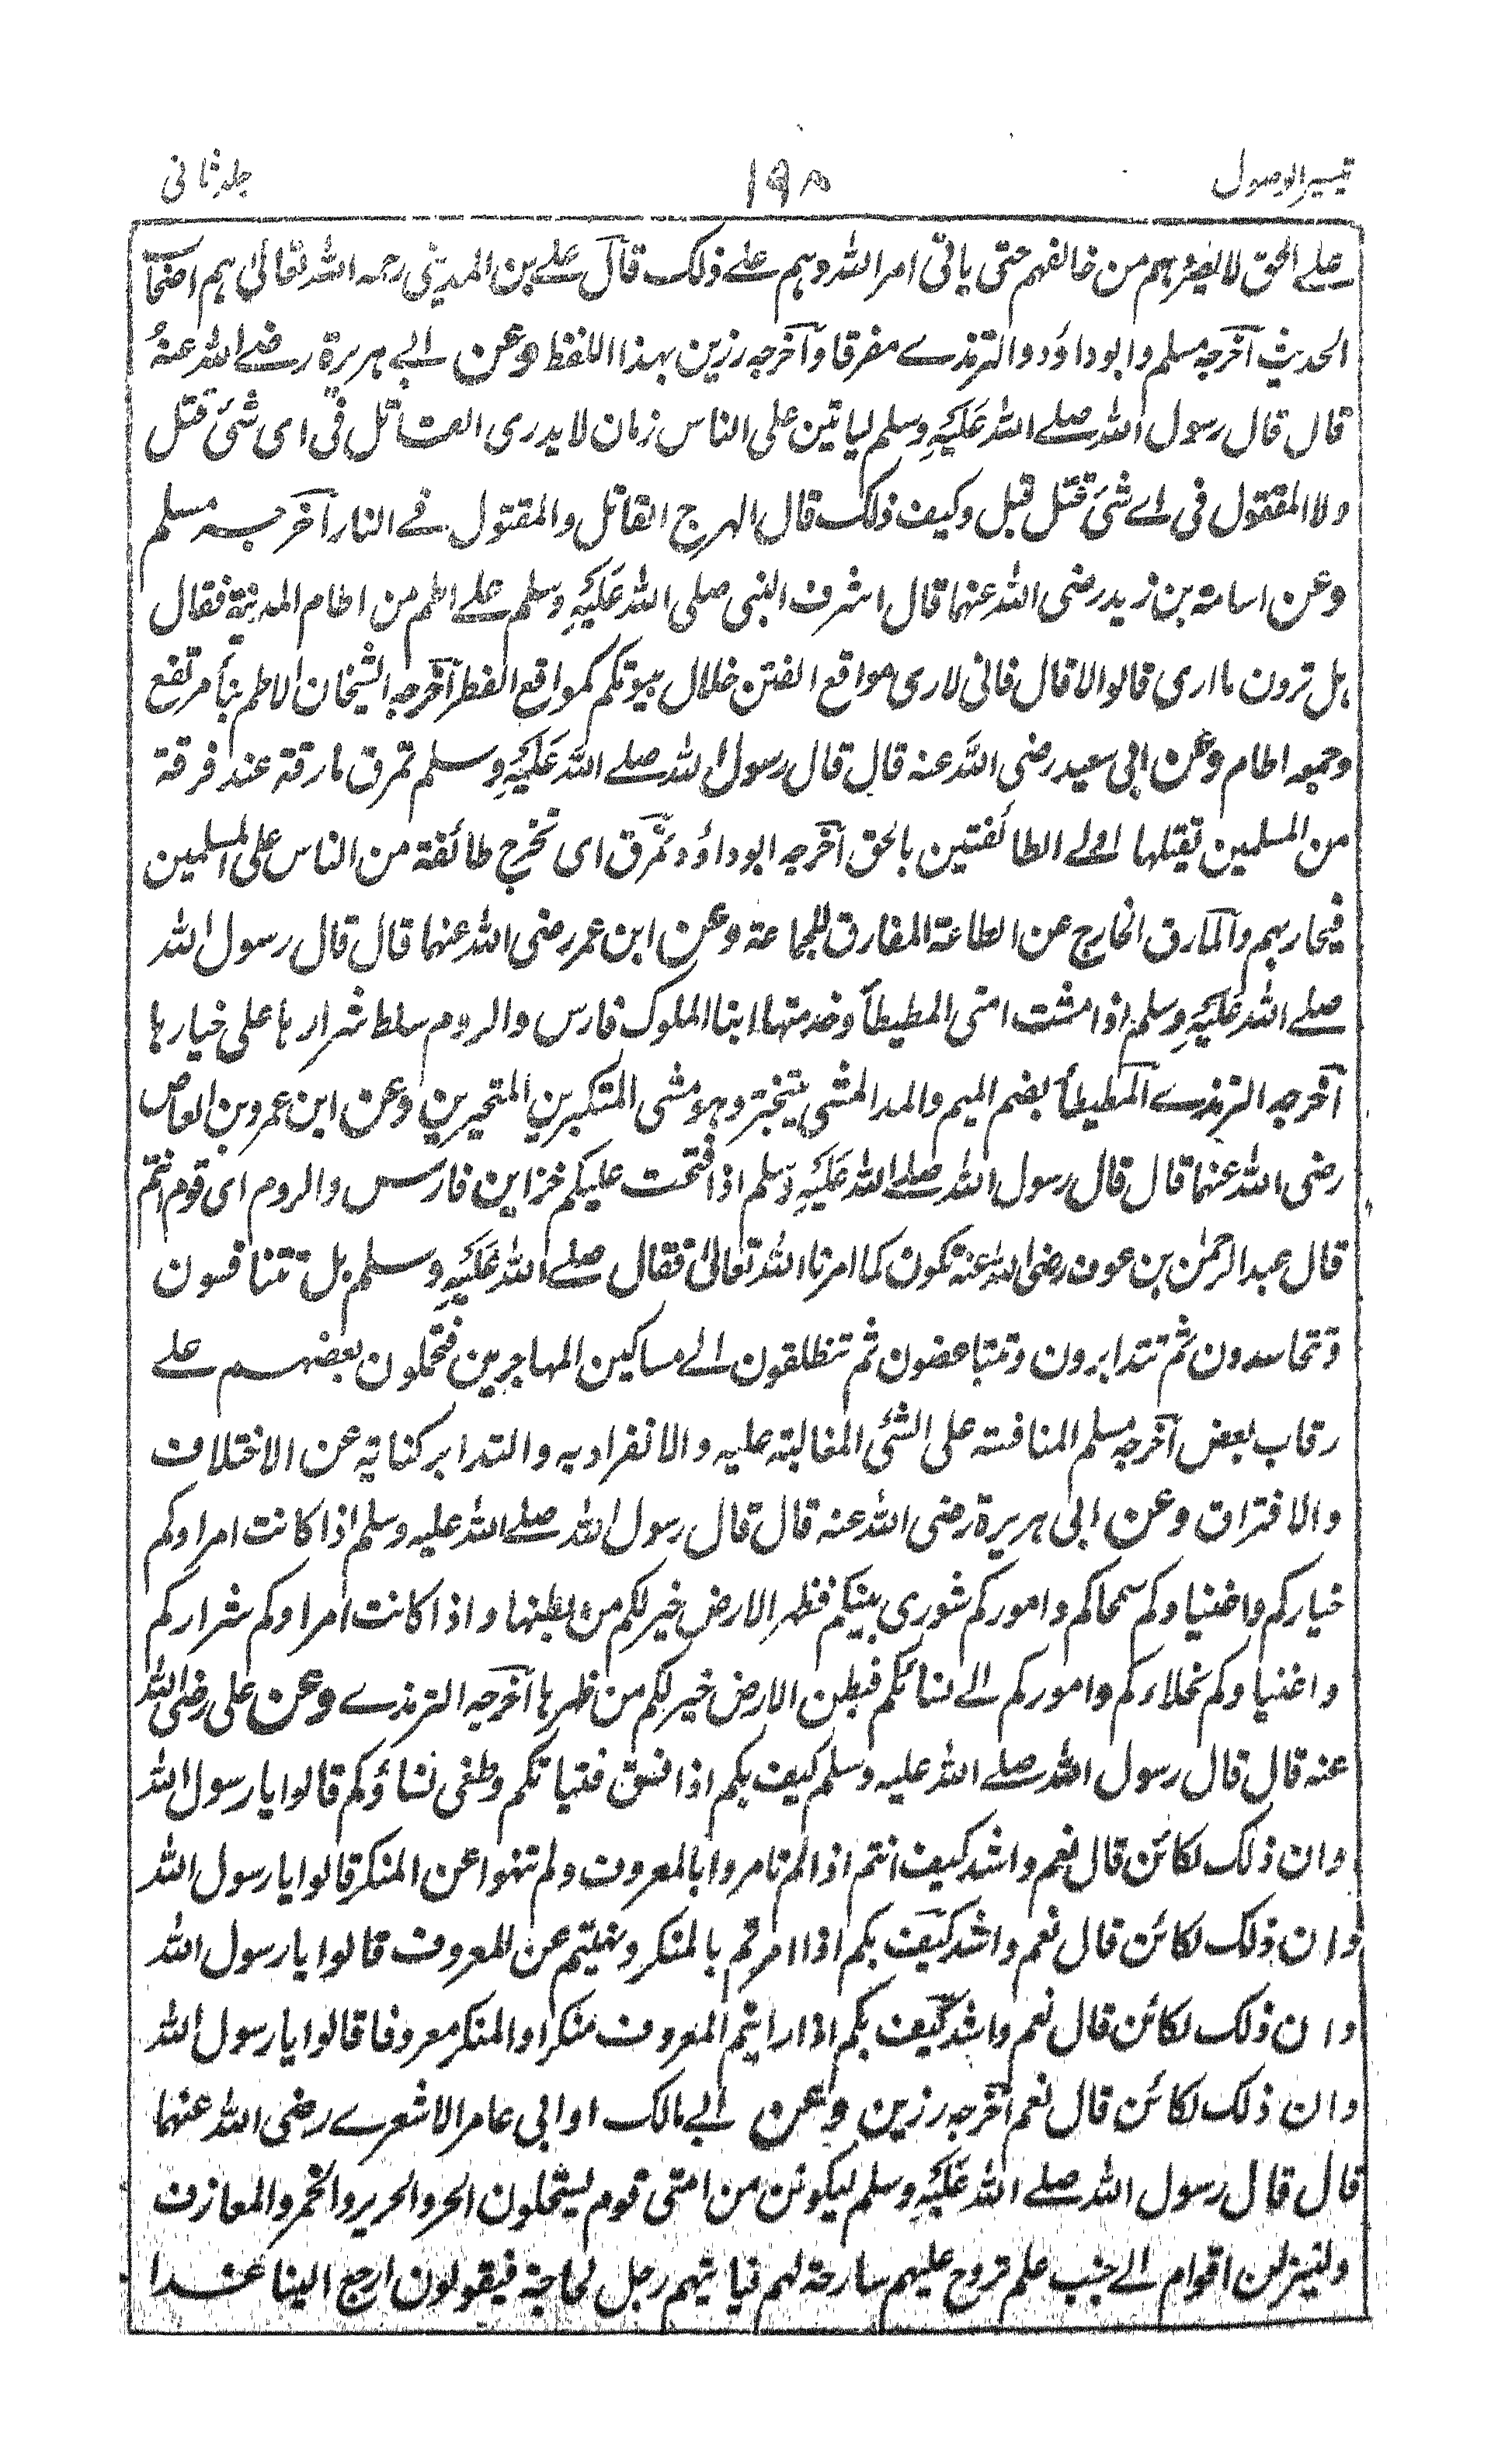 تیسیر الوصول ۱۹۸ جلد ثانی
علے الحق لا یضرہم من خالفہم حتی یاتی امر اللہ وہم علے ذلک قال علے بن المدینی رحمہ اللہ تعالیٰ ہم اصحاب
الحدیث اخرجہ مسلم وابوداؤد والترمذے مفرقا وآخرجہ رزین بہذا اللفظ وعن ابے ہریرۃ رضے اللہ عنہُ
قال قال رسول اللہ صلے اللہ عَلَیْہِ وسلم لیاتین علی الناس زمان لا یدری القاتل فی ای شئ قتل
ولا المقتول فی اے شئ قتل قیل وکیف ذلک قال الہرج القاتل والمقتول فے النار آخرجہ مسلم
وعن اسامۃ بن زید رضی اللہ عنہما قال اشرف النبی صلی اللہ عَلَیْہِ وسلم علے اطم من اطام المدینۃ فقال
ہل ترون ما اری قالوا لا قال فانی لاری مواقع الفتن خلال بیوتکم کمواقع القطر آخرجہ الشیخان الاطم بناٗ مرتفع
وجمعہ اطام وعن ابی سعید رضی اللہ عنہ قال قال رسول اللہ صلے اللہ عَلَیْہِ وسلم تمرق مارقۃ عند فرقۃ
من المسلمین تقتلہا اولے الطائفتین بالحق آخرجہ ابوداؤد تمرق ای تخرج طائفۃ من الناس علی المسلمین
فیحاربہم والمارق الخارج عن الطاعۃ المفارق للجماعۃ وعن ابن عمر رضی اللہ عنہما قال قال رسول اللہ
صلے اللہ عَلَیْہِ وسلم اذا مشت امتی المطیطاٗ وخدمتہا ابنا الملوک فارس والروم سلط شرارہا علی خیارہا
آخرجہ الترمذے المطیطاٗ بضم المیم والمد المشی بتبختر وہو مشی المتکبرین المتجبرین وعن ابن عمرو بن العاص
رضی اللہ عنہما قال قال رسول اللہ صلے اللہ عَلَیْہِ وسلم اذا فتحت علیکم خزاین فارس والروم ای قوم انتم
قال عبد الرحمٰن بن عوف رضی اللہ عنہ نکون کما امرنا اللہ تعالیٰ فقال صلے اللہ عَلَیْہِ وسلم بل تتنافسون
وتحاسدون ثم تتدابرون وتتباغضون ثم تنطلقون الے مساکین المہاجرین فتحملون بعضہم علے
رقاب بعض آخرجہ مسلم المنافستہ علی الشئ المغالبتہ علیہ والانفراد بہ والتدابر کنایۃ عن الاختلاف
والافتراق وعن ابی ہریرۃ رضی اللہ عنہ قال قال رسول اللہ صلے اللہ علیہ وسلم اذا کانت امراوکم
خیارکم واغنیاوکم سمحاکم وامورکم شوری بینکم فظہر الارض خیر لکم من بطنہا واذا کانت امراوکم شرارکم
واغنیاوکم بخلاءکم وامورکم الے نسائکم فبطن الارض خیر لکم من ظہرہا آخرجہ الترمذے وعن علی رضی اللہ
عنہ قال قال رسول اللہ صلے اللہ علیہ وسلم کیف بکم اذا فسق فتیاتکم وطغی نساؤکم قالوا یا رسول اللہ
وان ذلک لکائن قال نعم واشد کیف انتم اذا لم تامروا بالمعروف ولم تنہوا عن المنکر قالوا یا رسول اللہ
وان ذلک لکائن قال نعم واشد کیف بکم اذا امرتم بالمنکر ونہیتم عن المعروف قالوا یا رسول اللہ
وان ذلک لکائن قال نعم واشد کیف بکم اذا رایتم المعروف منکرا والمنکر معروفا قالوا یا رسول اللہ
وان ذلک لکائن قال نعم آخرجہ رزین وعن ابے مالک او ابی عامر الاشعرے رضی اللہ عنہما
قال قال رسول اللہ صلے اللہ عَلَیْہِ وسلم لیکونن من امتی قوم لیستحلون الحر والحریر والخمر والمعازف
ولینزلن اقوام الے جنب علم تروح علیہم سارحۃ لہم فیاتیہم رجل لحاجۃ فیقولون ارجع الینا غدا